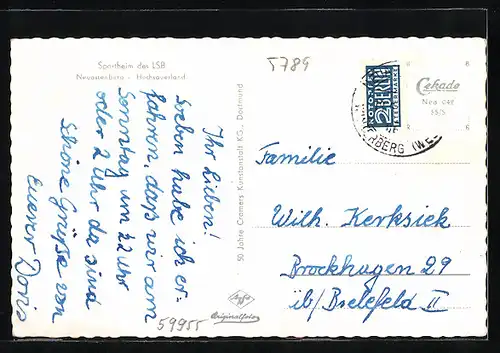 Sportheim des LSB
Neuastenberg - Hochsauerland
5789
Ihr Lieben!
Soeben habe ich er-
fahren, daß wir am
Sonntag um 22 Uhr
oder 2 Uhr da sind
Schöne Grüße von
Eurer Doris
59955
50 Jahre Cremers Kunstanstalt KG., Dortmund
Agfa
Originalfoto
NOTOPFER
2 BERLIN
STEUERMARKE
ERBERG (WE
Cekade
Neu 047
55/5
Familie
Wilh. Kerksiek
Brockhagen 29
üb/Bielefeld II